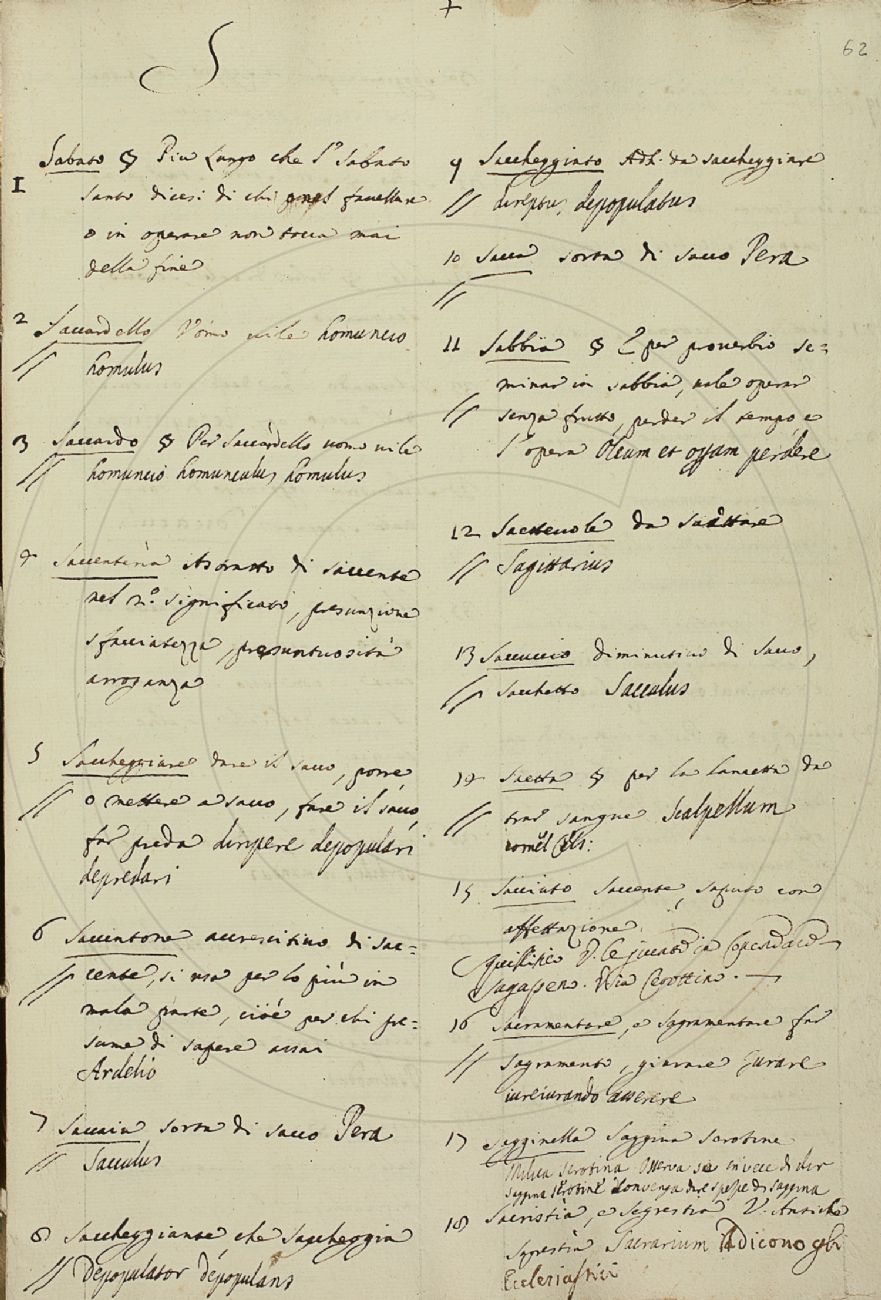 +
62
S
1 Sabato § Piu lungo che 'l Sabato
santo dicesi di chi nel favellare
o in operare non tocca mai
della fine
2 Saccardello Vomo vile homuncio
// homulus
3 Saccardo § Per Saccardello uomo vile
// homuncio homunculus homulus
4 Saccenteria Astratto di saccente
nel 2.º significato, presunzione
sfacciatezza, presuntuosità
arroganza
5 Saccheggiare dare il sacco, porre
// o mettere a sacco, fare il sacco,
far preda diripere depopulari
depredari
6 Saccentone accrescitivo di sac=
// cente, si usa per lo più in
mala parte, cioè per chi pre=
sume di sapere assai
Ardelio
7 Saccaia sorta di sacco Pera
// Sacculus
8 Saccheggiante, che saccheggia
// Depopulator depopulans
9 Saccheggiato Ad. da saccheggiare
// direptus, depopulatus
10 Sacca sorta di sacco Pera
//
11 Sabbia § E per proverbio se=
minar in sabbia, vale operar
// senza frutto, perder il tempo e
l'opera Oleum et operam perdere
12 Saettevole da Saettare
// Sagittarius
13 Saccuccio diminutivo di Sacco,
// sacchetto Sacculus
14 Saetta § per la lancetta da
// trar sangue Scalpellum
Cels:
15 Sacciuto Saccente, saputo con
affettazione
16 Sacramentare, e Sagramentare far
// sagramento, giurare Jurare
iureiurando asserere
17 Sagginella Saggina serotine
Milica serotina Osserva se invece di dir
saggina serotine convenga dire spezie di saggina
18 Sacristia, e Segrestia V. Antiche
Sagrestia Sacrarium dicono gli
Ecclesiastici